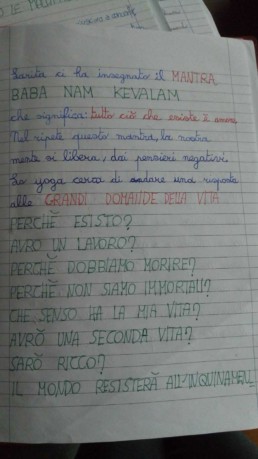 Sarita ci ha insegnato il MANTRA
BABA NAM KEVALAM
che significa: tutto ciò che esiste è amore
Nel ripete questo mantra, la nostra
mente si libera, dai pensieri negativi.
Lo yoga cerca di andare una risposta
alle GRANDI DOMANDE DELLA VITA
PERCHÈ ESISTO?
AVRÒ UN LAVORO?
PERCHÈ DOBBIAMO MORIRE?
PERCHÈ NON SIAMO IMMORTALI?
CHE SENSO HA LA MIA VITA?
AVRÒ UNA SECONDA VITA?
SARÒ RICCO?
IL MONDO RESISTERÀ ALL'INQUINAMEN